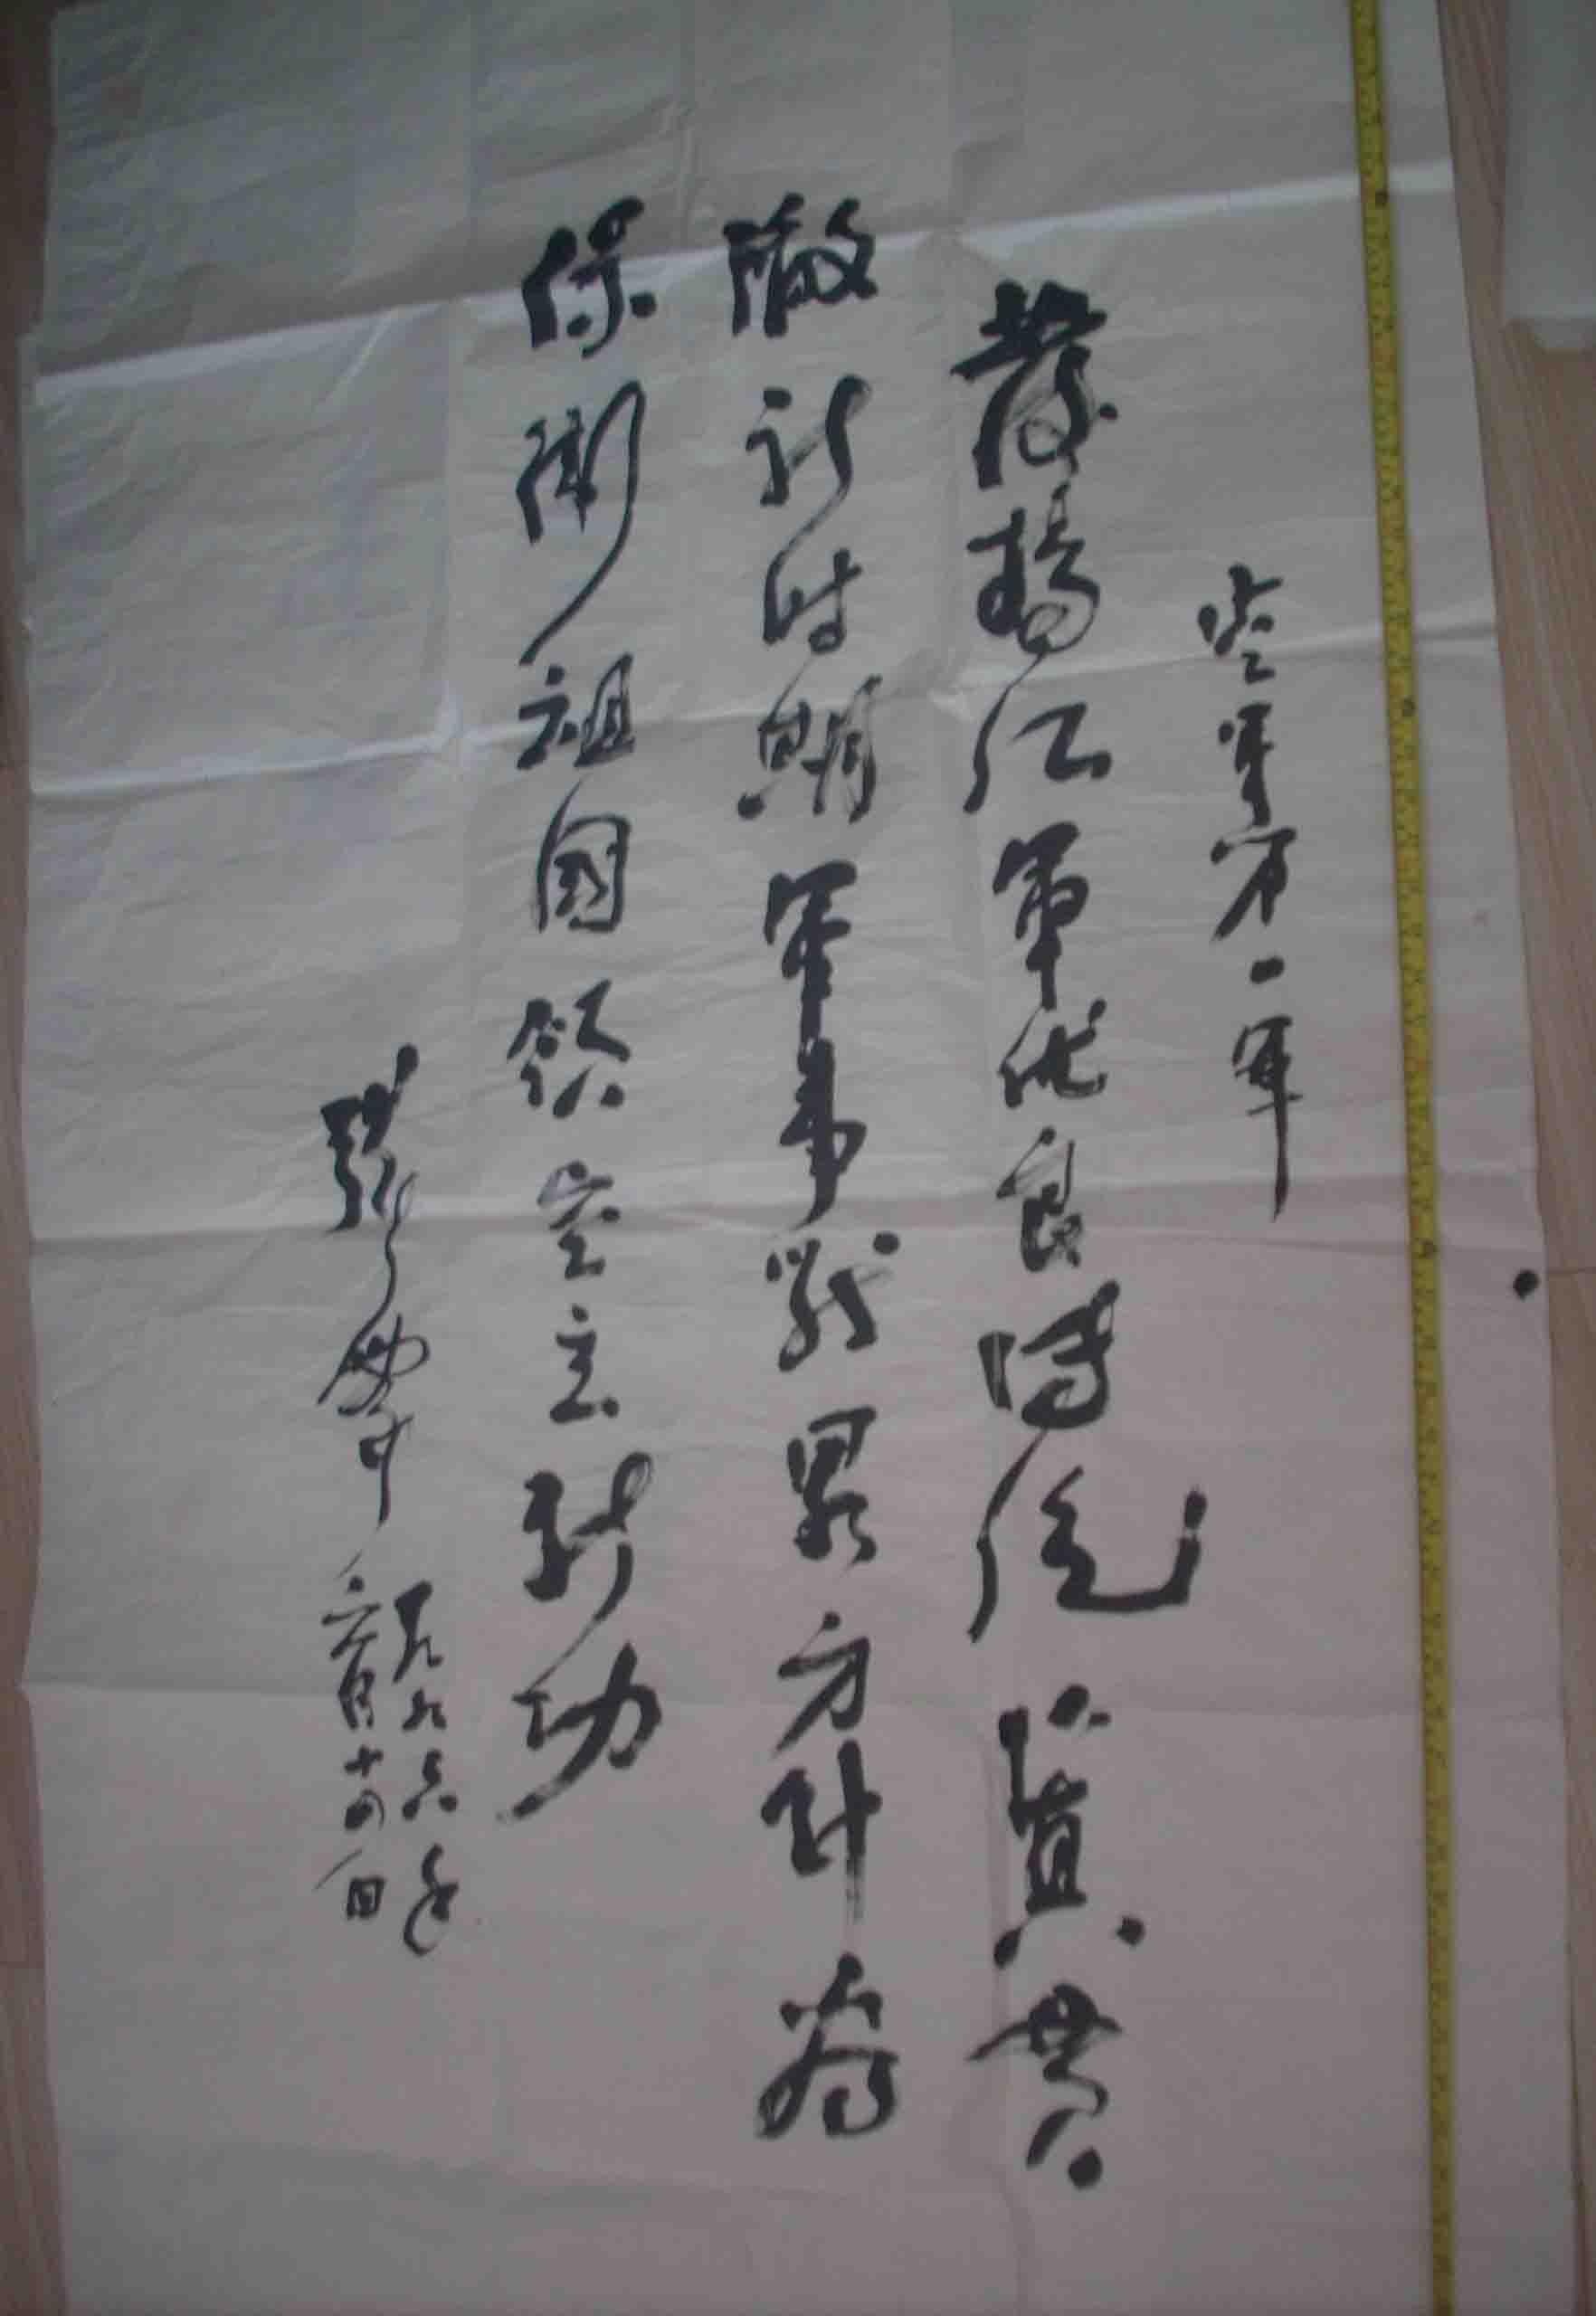 空军第一军
发扬红军优良传统 认真贯
彻新时期军事战略方针 为
保卫祖國领空立新功
一九九六年
六月十四日